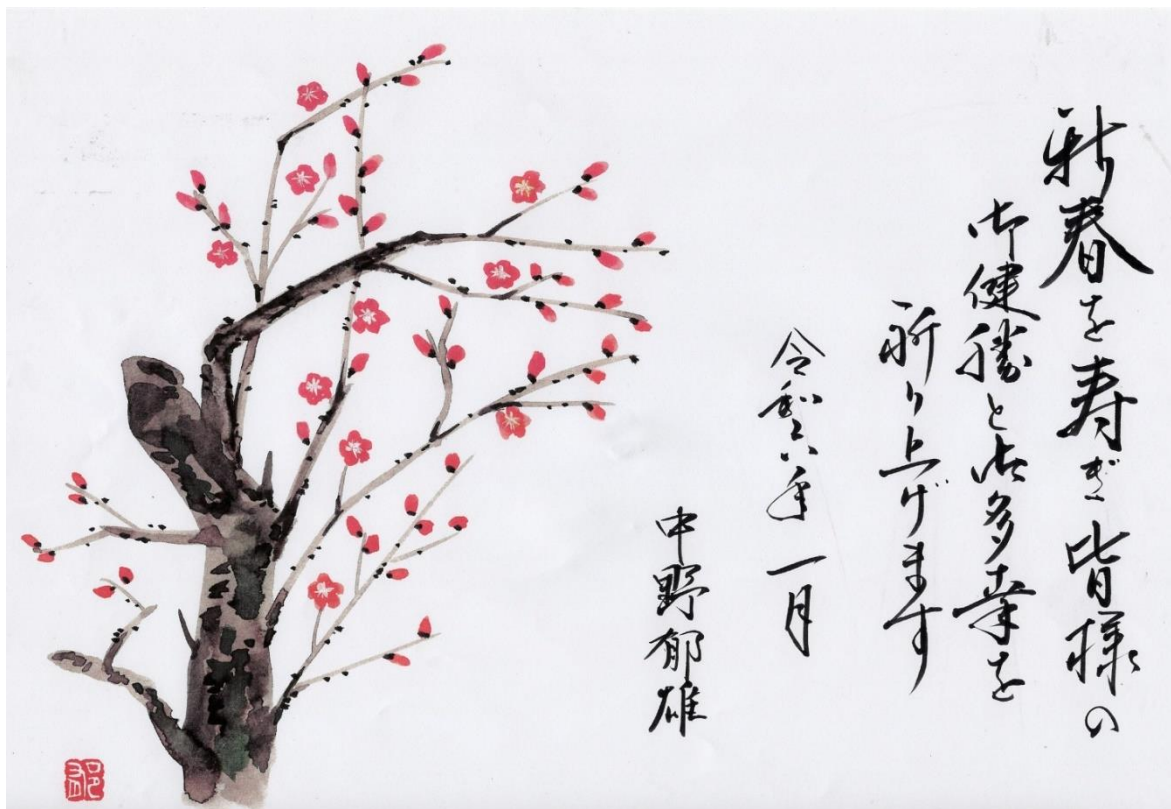 新春を寿ぎ皆様の
御健勝と御多幸を
祈り上げます
令和六年一月
中野郁雄